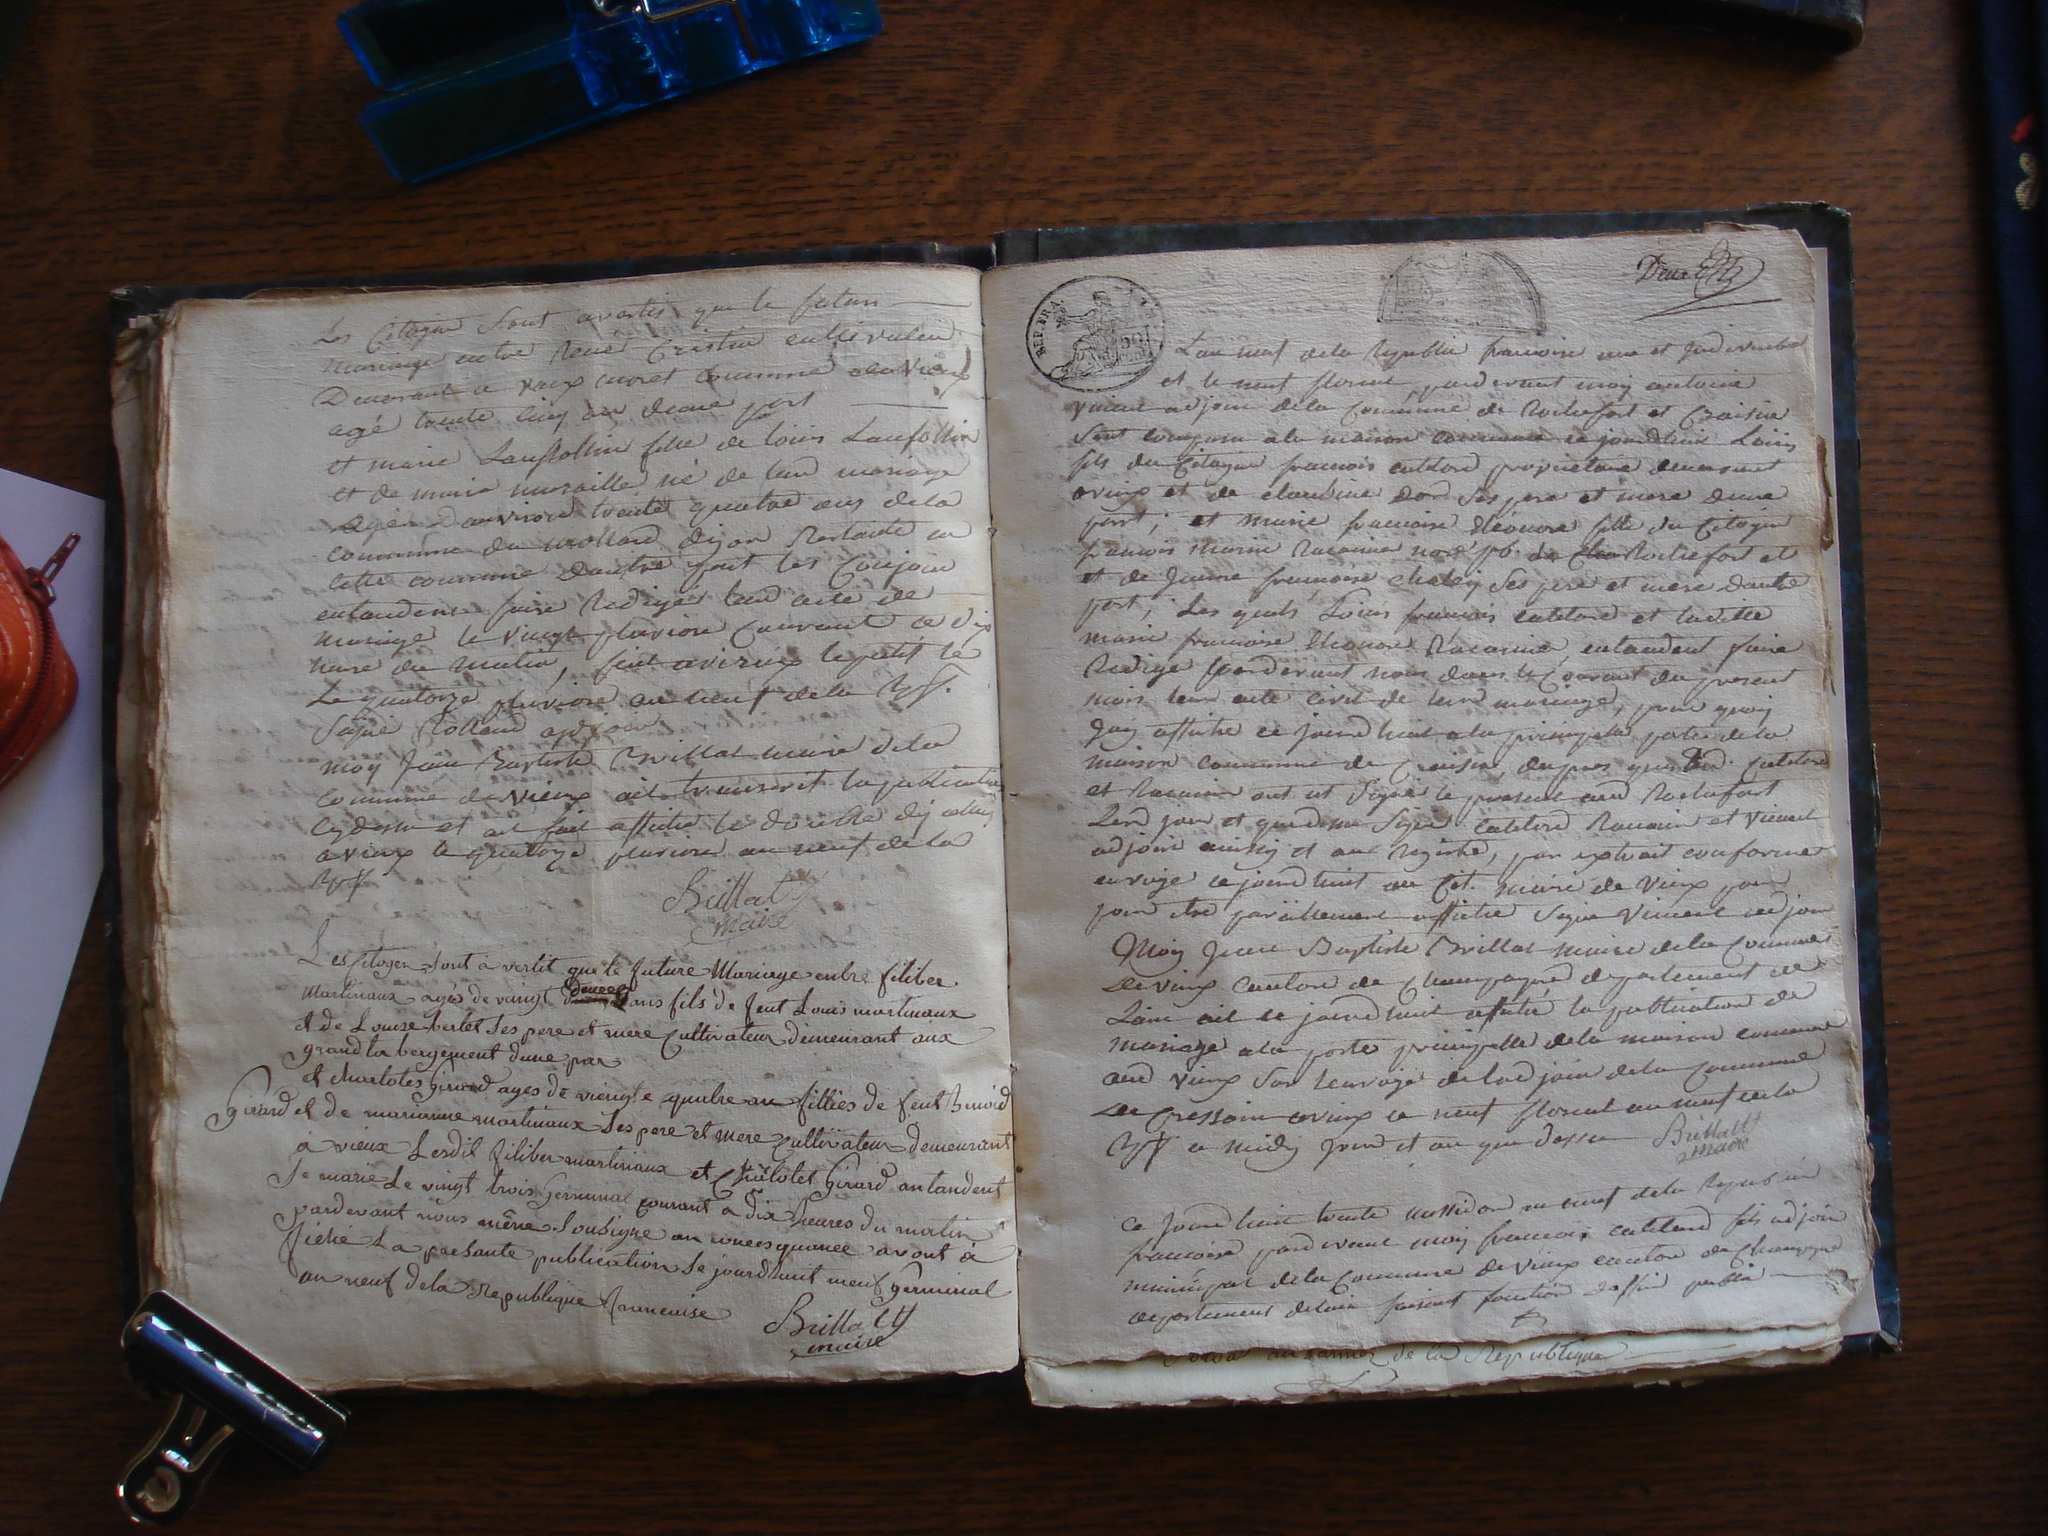 Les Citoyen Sont avertis que le futur
mariage entre René Cristin cultivateur
Demeurant a vaux moret Commune de Vieux
agé trente cinq an d'une part
et marie Laufollin fille de Louis Laufollin
et de marie muraille né de leur mariage
agée D'anviron trente quatre ans de la
commune du mollard dijon Restante en
Cette commune d'autre part les Conjoin
entandent faire Rediger leur acte de
mariage le vingt pluviose Courant a dix
heure du matin, fait a virieux le petit le
Le quatorze pluviose an neuf de la Rep.
Signé Rolland adjoint
moy Jean Baptiste Brillat maire de la
commune de vieux ait transcrit la publication
Cy dessu et ait fait affiche le double
a vieux le quatorze pluviose an neuf de la
Rep
Brillat
maire
Les Citoyen Sont à vertit que le future Mariage entre filiber
Martinaux agés de vaingt deuee ans fils de feut Louis martinaux
et de Louise bertet Ses pere et mere Cultivateur demeurant aux
grand la bergement dune par
et charlotes Girard ages de viengte quatre an fillies de feut Benoid
Girard et de marianne martinaux Ses pere et mere Cultivateur demeurant
à vieux Lesdit filiber martinaux et Charlotet Girard antandent
Se marie Le vingt trois Germinal courant à dix heures du matin
pardevant nous même Sousigne an concesquance avont à
fiché La presante publication Le jourdhuit neuf Germinal
an neuf de la Republique francaise
Brillat
maire
REP. FRA.
Deux
L'an neuf de la Republie francoise une et Indivisible
et le neuf floreal, pardevant moy antoine
vincent adjoin de la Commune de Rochefort et Craisin
Sont comparu a la maison commune ce jourdhui Louis
fils du Citoyen francois catelard proprietaire demeurant
a vieux et de claudine dord Ses pere et mere d'une
part; et marie francoise Eléonore fille du Citoyen
francois marin Racanier de Rochefort et
et de Jeanne francoise Chaley Ses pere et mere dautre
part; Les quels Louis francois catelard et ladite
marie francoise Eléonore Racanier, entandent faire
Rediger pardevant nous dans le Courant du present
mois leur acte civil de leur mariage, pour quoy
Jay affiche ce jourdhuit a la principale porte de la
maison commune de Craisin, catelard
et Racanier ont et Signé le present aud Rochefort
Led jour et que dessu Signé catelard Racanier et Vincent
adjoin ainsy et au Registre, par extrait conforme
envoye ce jourdhuit au Cit. maire de Vieux pour
pour être pareillement affiche Signé Vincent adjoin
Moy Jean Baptiste Brillat maire de la Commune
De vieux canton de Champagne departement de
Lain ait ce jourdhuit affiche la publication de
mariage a la porte principalle de la maison commune
aud vieux Sur lenvoye de lad join de la Commune
De Cressoin a vieux ce neuf floreal an neuf de la
Rep a midy Jour et an que dessu Brillat
maire
Ce Jourdhuit trente messidor an neuf de la Republie
francoise pardevant moy francois catelard fils adjoin
municipal de la Commune de vieux canton de Champagne
departement delain faisant fonction doffici publie
an dernier de la Republique